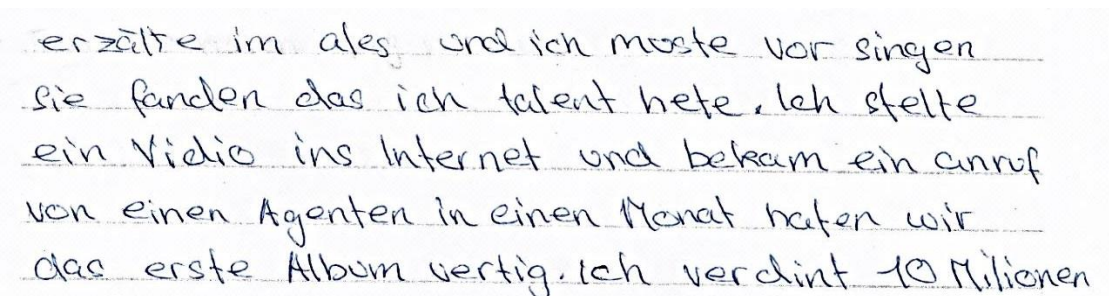 erzälte im ales und ich moste vor singen
sie fanden das ich talent hete. Ich stelte
ein Vidio ins Internet und bekam ein anruf
von einen Agenten in einen Monat haten wir
das erste Album vertig. Ich verdint 10 Milionen